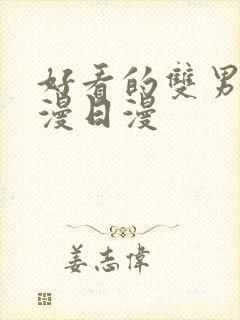 好看的雙男
漫日漫
姜志偉